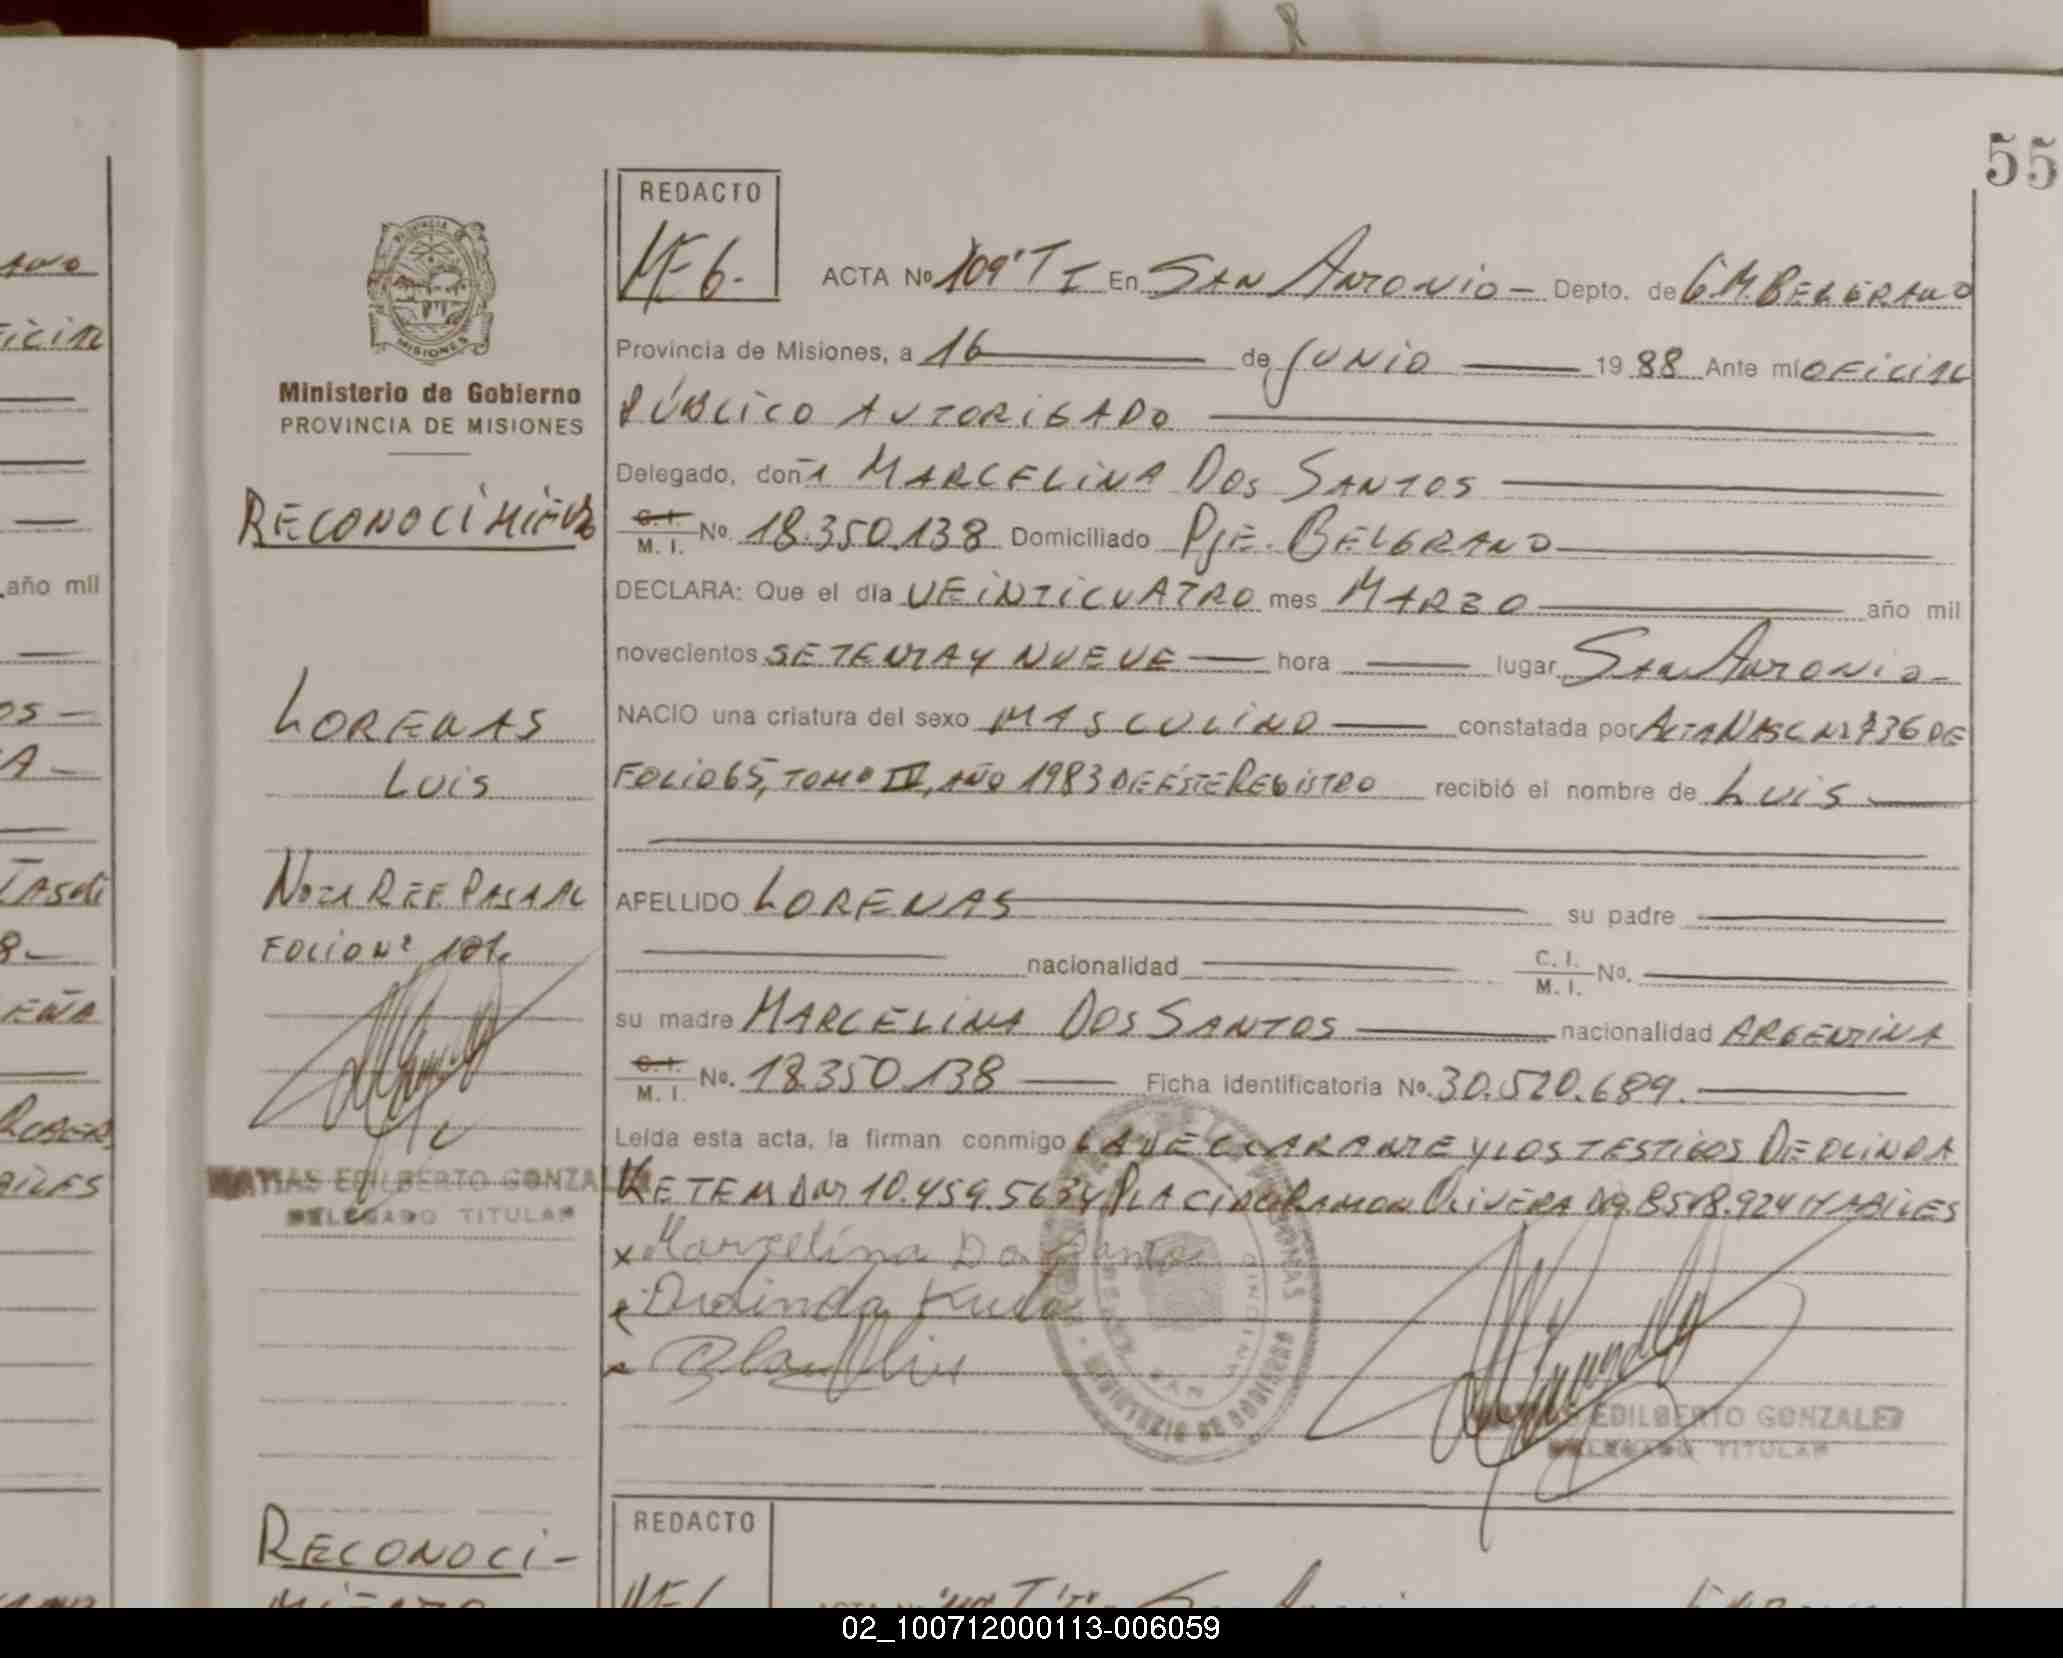 55
REDACTO
MEG.
ACTA Nº 109' T I En SAN ANTONIO - Depto. de G.M. BELGRANO
Provincia de Misiones, a 16 de JUNIO 1988 Ante mí OFICIAL
PÚBLICO AUTORIGADO
Delegado, doña MARCELINA DOS SANTOS
C.I. M. I. No. 18.350.138 Domiciliado PJE. BELGRANO
DECLARA: Que el día VEINTICUATRO mes MARZO año mil
novecientos SETENTA Y NUEVE hora lugar SAN ANTONIO-
NACIO una criatura del sexo MASCULINO constatada por ACTA NASC Nº 736 DE
FOLIO 65, TOMO IV, AÑO 1983 DE ÉSTE REGISTRO recibió el nombre de LUIS
APELLIDO LORENAS su padre
nacionalidad C. I. M. I. No.
su madre MARCELINA DOS SANTOS nacionalidad ARGENTINA
C.I. M. I. No. 18.350.138 Ficha identificatoria No. 30.520.689.
Leída esta acta, la firman conmigo LA DECLARANTE Y LOS TESTIGOS DEOLINDA
10.459.563 Y PLACIDO RAMON OLIVERA 8.518.924 HABILES
x Marcelina Dos Santos
Deolinda
MATIAS EDILBERTO GONZALEZ
DELEGADO TITULAR
PROVINCIA DE MISIONES
Ministerio de Gobierno
PROVINCIA DE MISIONES
RECONOCIMIENTO
LORENAS
LUIS
NOTA REF. PASA AL
FOLIO Nº 101.
MATIAS EDILBERTO GONZALEZ
DELEGADO TITULAR
RECONOCI-
MIENTO
REDACTO
año mil
02_100712000113-006059